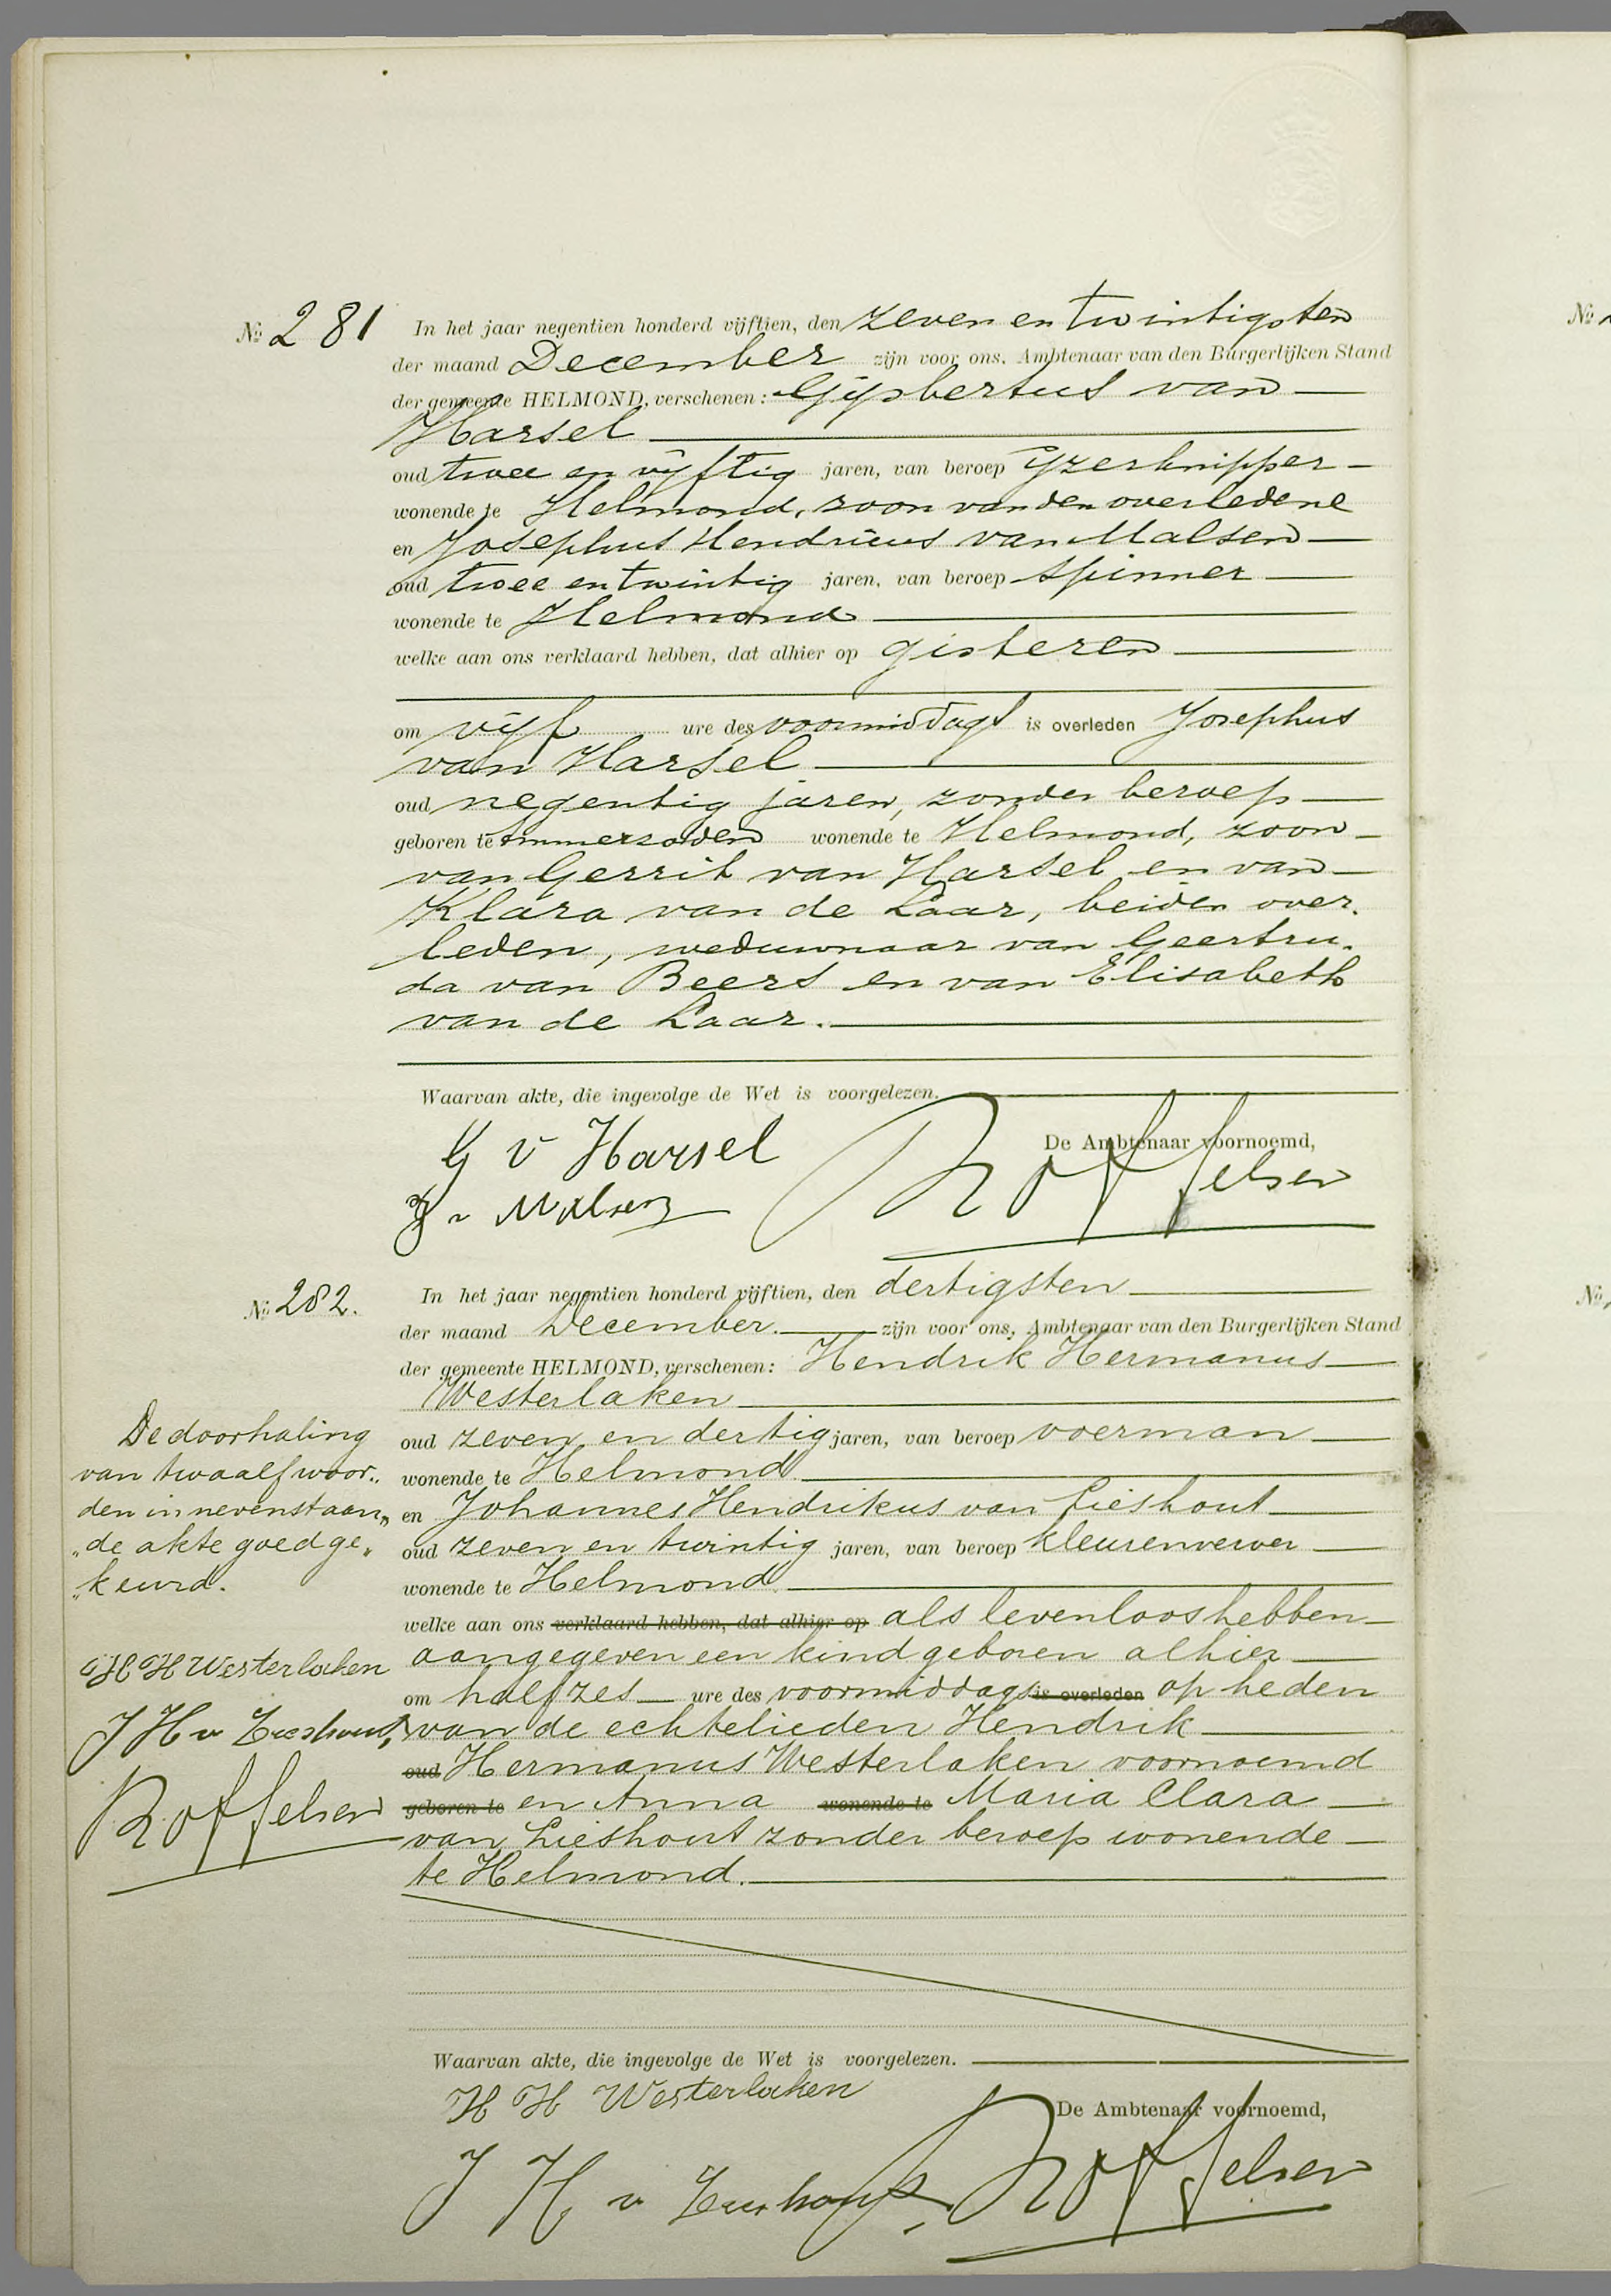 № 281 In het jaar negentien honderd vijftien, den zeven en twintigsten
der maand December zijn voor ons, Ambtenaar van den Burgerlijken Stand
der gemeente HELMOND, verschenen: Gijsbertus van
Harsel
oud twee en vijftig jaren, van beroep ijzerknipper
wonende te Helmond, zoon van den overledene
en Josephus Hendricus van Malsen
oud twee en twintig jaren, van beroep spinner
wonende te Helmond
welke aan ons verklaard hebben, dat alhier op gisteren
om vijf ure des voormiddags is overleden Josephus
van Harsel
oud negentig jaren, zonder beroep
geboren te Ammerzoden wonende te Helmond, zoon
van Gerrit van Harsel en van
Klara van de Laar, beiden over-
leden, weduwnaar van Geertru-
da van Beers en van Elisabeth
van de Laar.
Waarvan akte, die ingevolge de Wet is voorgelezen.
De Ambtenaar voornoemd,
G v Harsel
J v Malsen
№ 282. In het jaar negentien honderd vijftien, den dertigsten
der maand December. zijn voor ons, Ambtenaar van den Burgerlijken Stand
der gemeente HELMOND, verschenen: Hendrik Hermanus
Westerlaken
oud zeven en dertig jaren, van beroep voerman
wonende te Helmond
en Johannes Hendrikus van Lieshout
oud zeven en twintig jaren, van beroep kleurenverver
wonende te Helmond
welke aan ons verklaard hebben, dat alhier op als levenloos hebben
aangegeven een kind geboren alhier
om half zes ure des voormiddags is overleden op heden
van de echtelieden Hendrik
oud Hermanus Westerlaken voornoemd
geboren te en Anna wonende te Maria Clara
van Lieshout zonder beroep wonende
te Helmond.
De doorhaling
van twaalf woor„
den in nevenstaan„
„de akte goed ge„
„keurd.
H H Westerlaken
J H v Lieshout
Waarvan akte, die ingevolge de Wet is voorgelezen.
H H Westerlaken
De Ambtenaar voornoemd,
J H v Lieshout